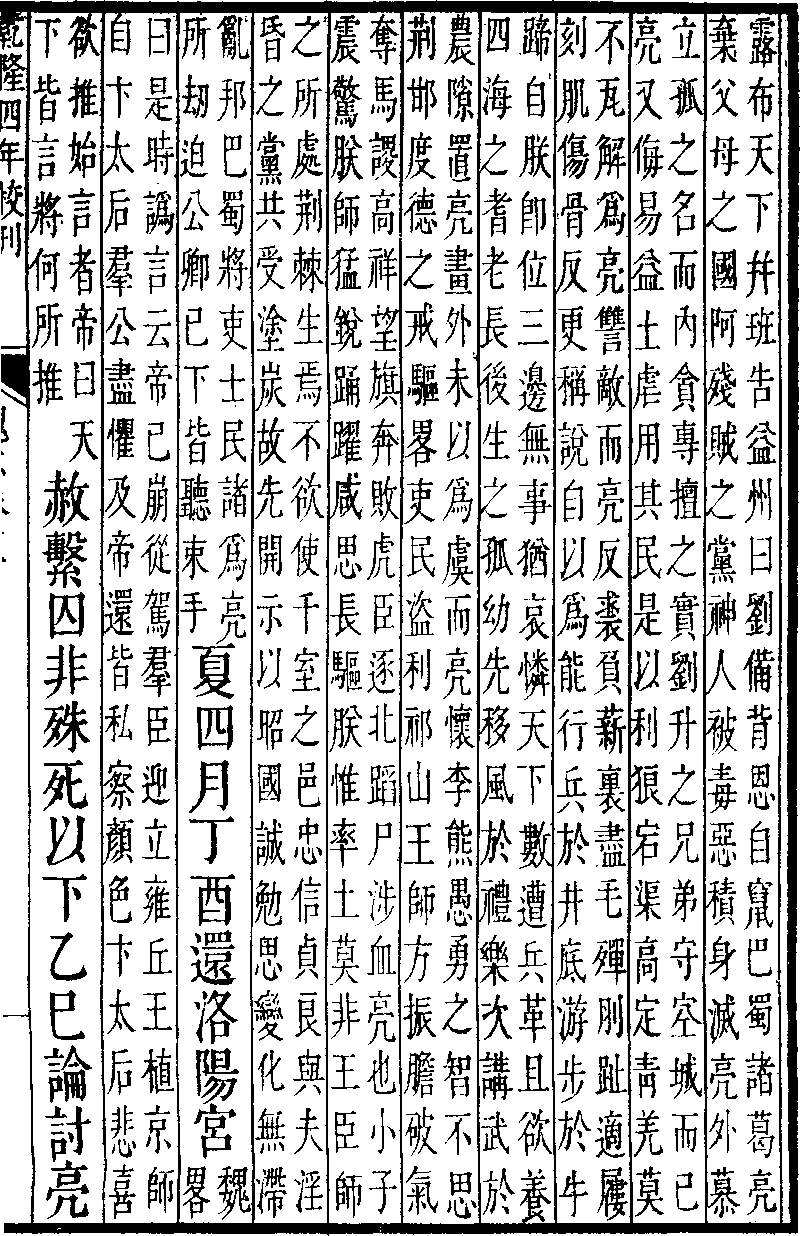 露布天下幷班告益州曰劉備背恩自竄巴蜀諸葛亮
棄父母之國阿殘賊之黨神人被毒惡積身滅亮外慕
立孤之名而內貪專擅之實劉升之兄弟守空城而已
亮又侮易益土虐用其民是以利狼宕渠高定青羌莫
不瓦解爲亮讐敵而亮反裘負薪裏盡毛殫刖趾適屨
刻肌傷骨反更稱說自以爲能行兵於井底游步於牛
蹄自朕卽位三邊無事猶哀憐天下數遭兵革且欲養
四海之耆老長後生之孤幼先移風於禮樂次講武於
農隙置亮畫外未以爲虞而亮懷李熊愚勇之智不思
荆邯度德之戒驅畧吏民盜利祁山王師方振膽破氣
奪馬謖高祥望旗奔敗虎臣逐北蹈尸涉血亮也小子
震驚朕師猛銳踊躍咸思長驅朕惟率土莫非王臣師
之所處荆棘生焉不欲使千室之邑忠信貞良與夫淫
昏之黨共受塗炭故先開示以昭國誠勉思變化無滯
亂邦巴蜀將吏士民諸爲亮
所劫迫公卿已下皆聽束手
夏四月丁酉還洛陽宮
魏
畧
曰是時譌言云帝已崩從駕羣臣迎立雍丘王植京師
自卞太后羣公盡懼及帝還皆私察顏色卞太后悲喜
欲推始言者帝曰天
下皆言將何所推
赦繫囚非殊死以下乙巳論討亮
乾隆四年校刊